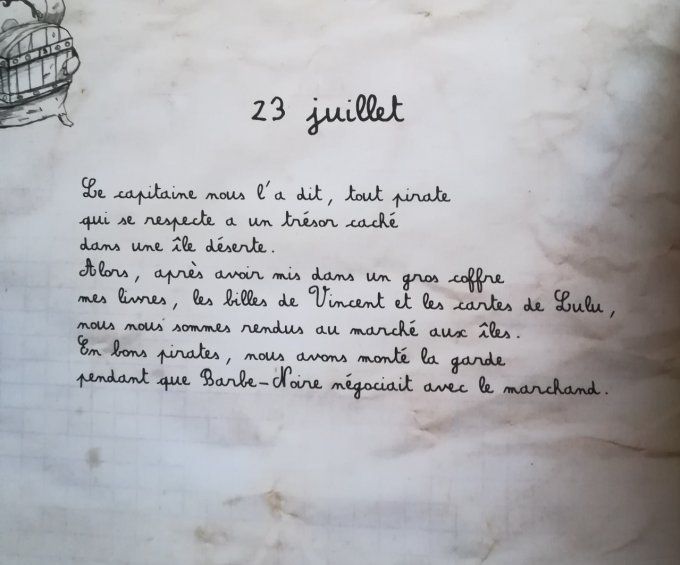 23 juillet
Le capitaine nous l'a dit, tout pirate
qui se respecte a un trésor caché
dans une île déserte.
Alors, après avoir mis dans un gros coffre
mes livres, les billes de Vincent et les cartes de Lulu,
nous nous sommes rendus au marché aux îles.
En bons pirates, nous avons monté la garde
pendant que Barbe-Noire négociait avec le marchand.